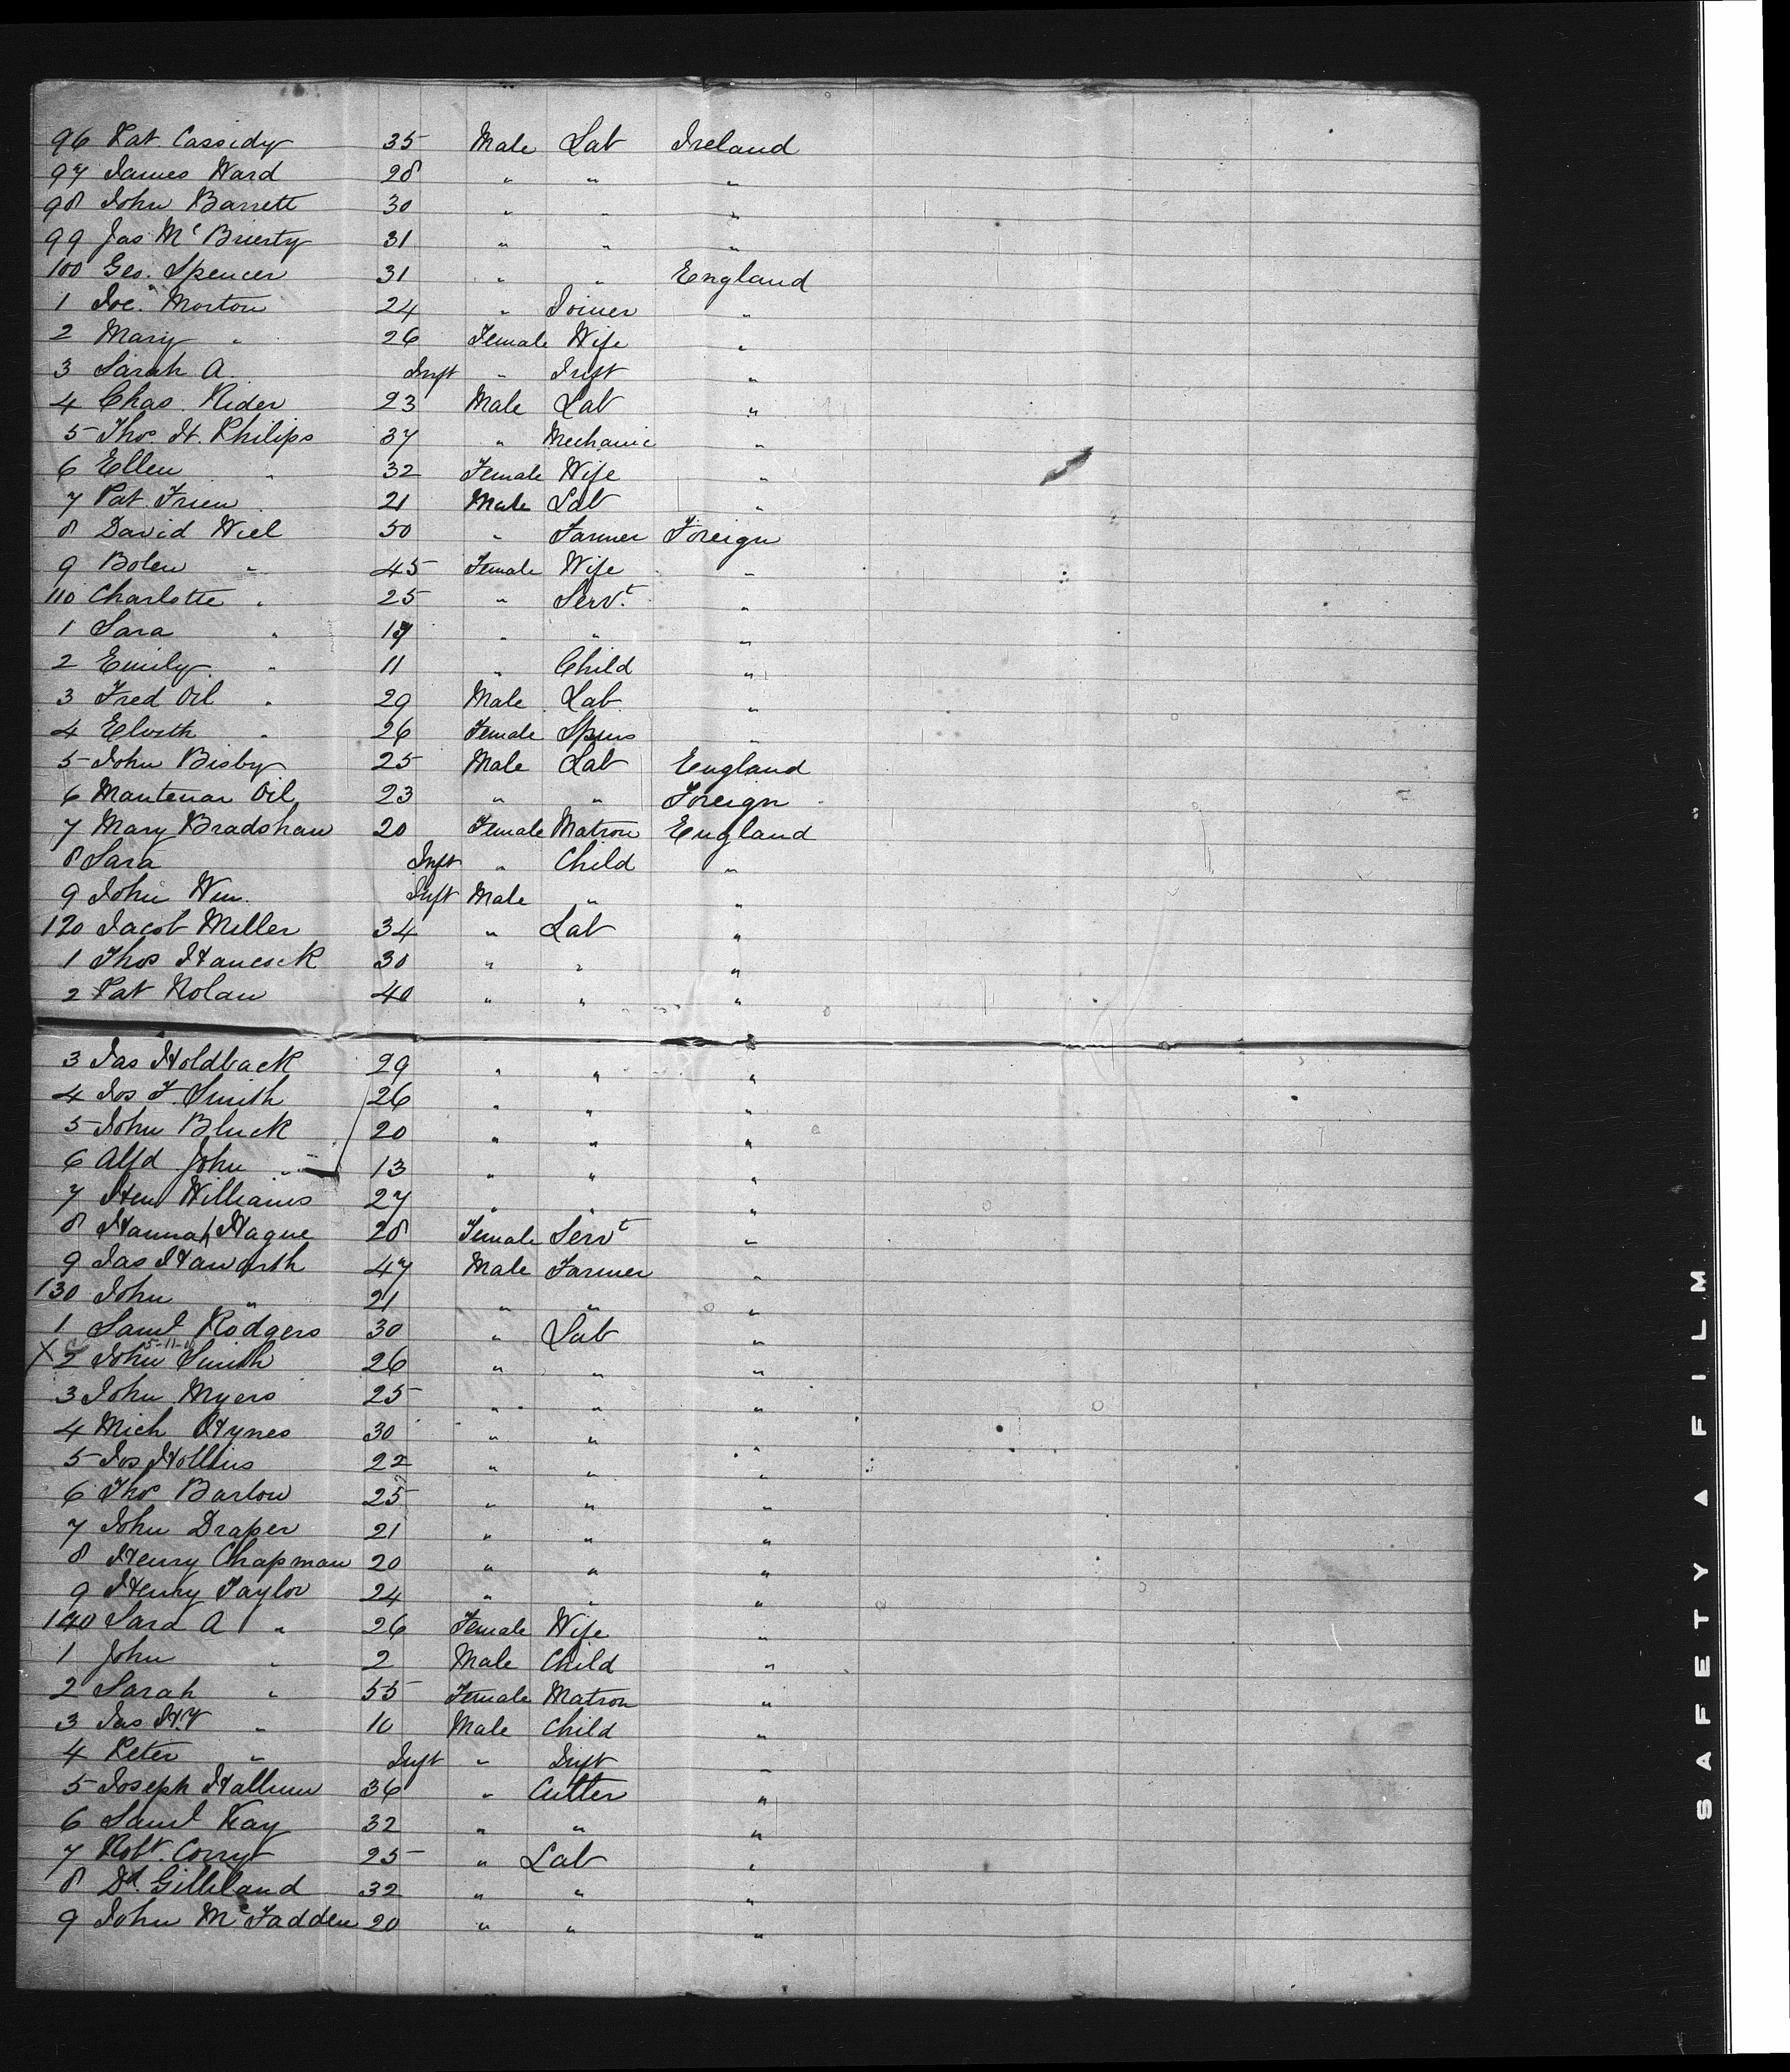 96 Pat Cassidy 35 Male Lab Ireland
97 James Ward 28 " " "
98 John Barrett 30 " " "
99 Jas McBriesty 31 " " "
100 Geo. Spencer 31 " " England
1 Joe. Morton 24 " Joiner "
2 Mary " 26 Female Wife "
3 Sarah A. Inft " Inft "
4 Chas. Rider 23 Male Lab "
5 Thos. H. Philips 37 " Mechanic "
6 Ellen " 32 Female Wife "
7 Pat Frien 21 Male Lab "
8 David Wiel 50 " Farmer Foreign
9 Bolen " 45 Female Wife "
110 Charlotte " 25 " Servt. "
1 Sara " 17 " " "
2 Emily " 11 " Child "
3 Fred Oil " 29 Male Lab "
4 " 26 Female "
5 John Bisby 25 Male Lab England
6 Mantenan Oil 23 " " Foreign
7 Mary Bradshaw 20 Female Matron England
8 Sara Inft " Child "
9 John Wm. Inft Male " "
120 Jacob Miller 34 " Lab "
1 Thos Hancock 30 " " "
2 Pat Nolan 40 " " "
3 Jas Holdback 29 " " "
4 Jos F. Smith 26 " " "
5 John Bluck 20 " " "
6 Alfd John " 13 " " "
7 Hen Williams 27 " " "
8 Hannah Hague 28 Female Servt "
9 Jas Haworth 47 Male Farmer "
130 John " 21 " " "
1 Saml Rodgers 30 " Lab "
X 2 John Smith 26 " " "
3 John Myers 25 " " "
4 Mich Hynes 30 " " "
5 Jos Hollins 22 " " "
6 Thos Barlow 25 " " "
7 John Draper 21 " " "
8 Henry Chapman 20 " " "
9 Henry Taylor 24 " " "
140 Sara A " 26 Female Wife "
1 John " 2 Male Child "
2 Sarah " 55 Female Matron "
3 Jas " 10 Male Child "
4 Peter " Inft " Inft "
5 Joseph Hallum 36 " Cutter "
6 Saml Kay 32 " " "
7 Robt. Corry 25 " Lab "
8 Dd. Gilleland 32 " " "
9 John McFadden 20 " " "
SAFETY A FILM